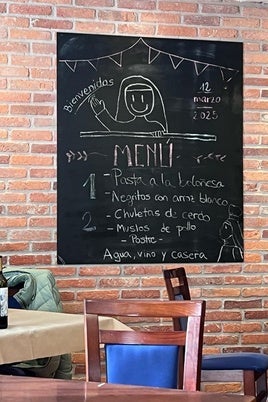 Bienvenidas
12
marzo
2025
MENÚ
1 - Pasta a la boloñesa
- Negritos con arroz blanco
2 - Chuletas de cerdo
- Muslos de pollo
- Postre -
Agua, vino y casera